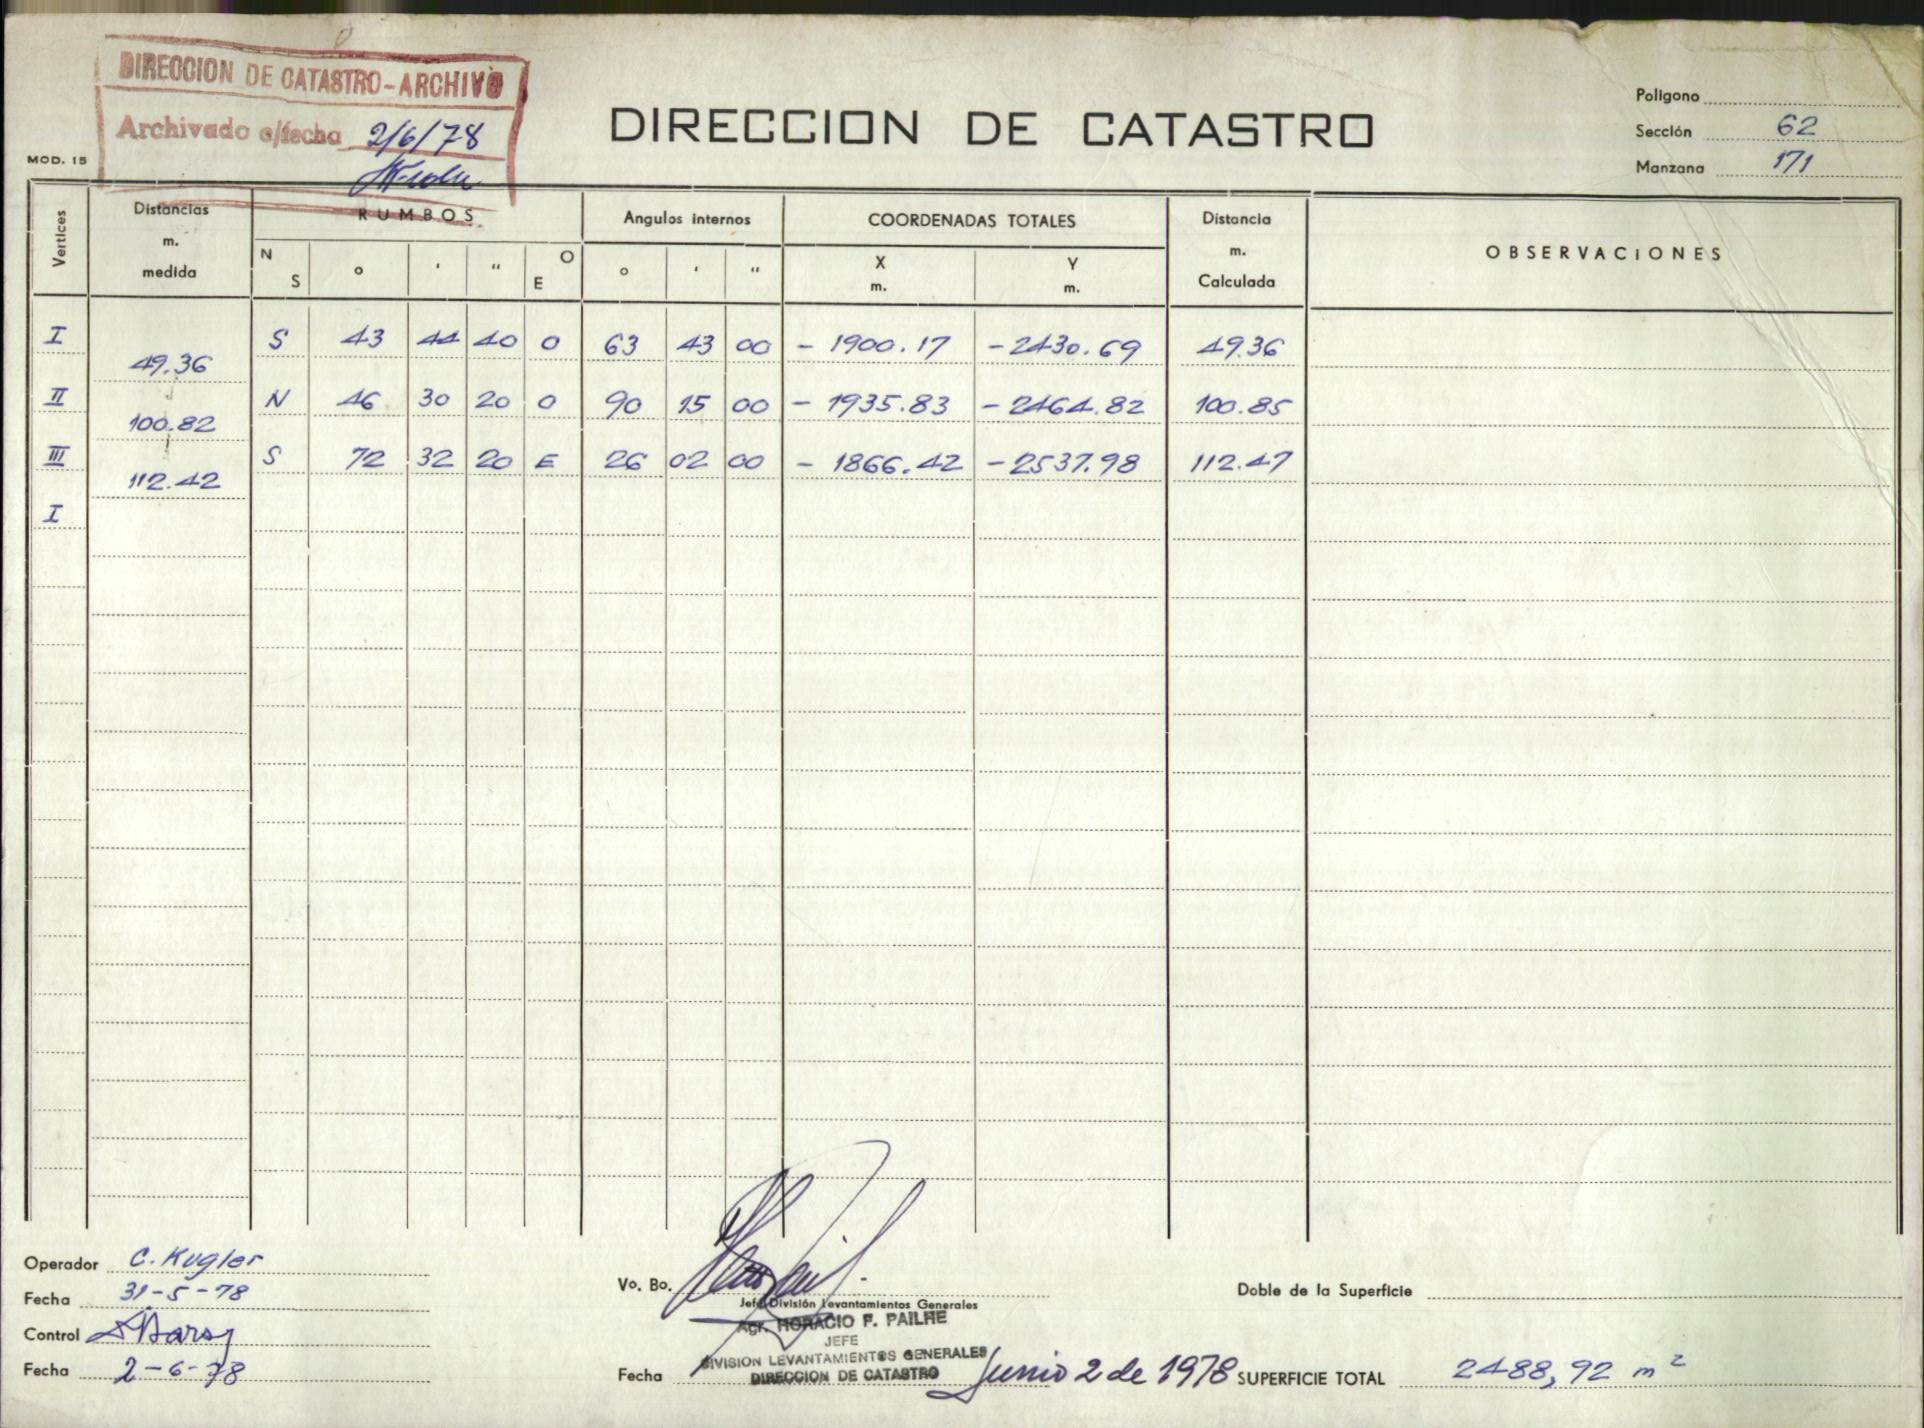 DIRECCION DE CATASTRO-ARCHIVO
Archivado c/fecha 2/6/78
MOD. 15
DIRECCION DE CATASTRO
Poligono
Sección 62
Manzana 171
Vertices Distancias m. medida RUMBOS N S ° ' " O E Angulos internos ° ' " COORDENADAS TOTALES X m. Y m. Distancia m. Calculada OBSERVACIONES
I S 43 44 40 O 63 43 00 - 1900.17 -2430.69 49.36
49.36
II N 46 30 20 O 90 15 00 - 1935.83 -2464.82 100.85
100.82
III S 72 32 20 E 26 02 00 - 1866.42 -2537.98 112.47
112.42
I
Operador C. Kugler
Fecha 31-5-78
Control
Fecha 2-6-78
Vo. Bo.
Jefe División Levantamientos Generales
Agr. HORACIO F. PAILHE
JEFE
DIVISION LEVANTAMIENTOS GENERALES
DIRECCION DE CATASTRO
Fecha Junio 2 de 1978
Doble de la Superficie
SUPERFICIE TOTAL 2488,92 m²